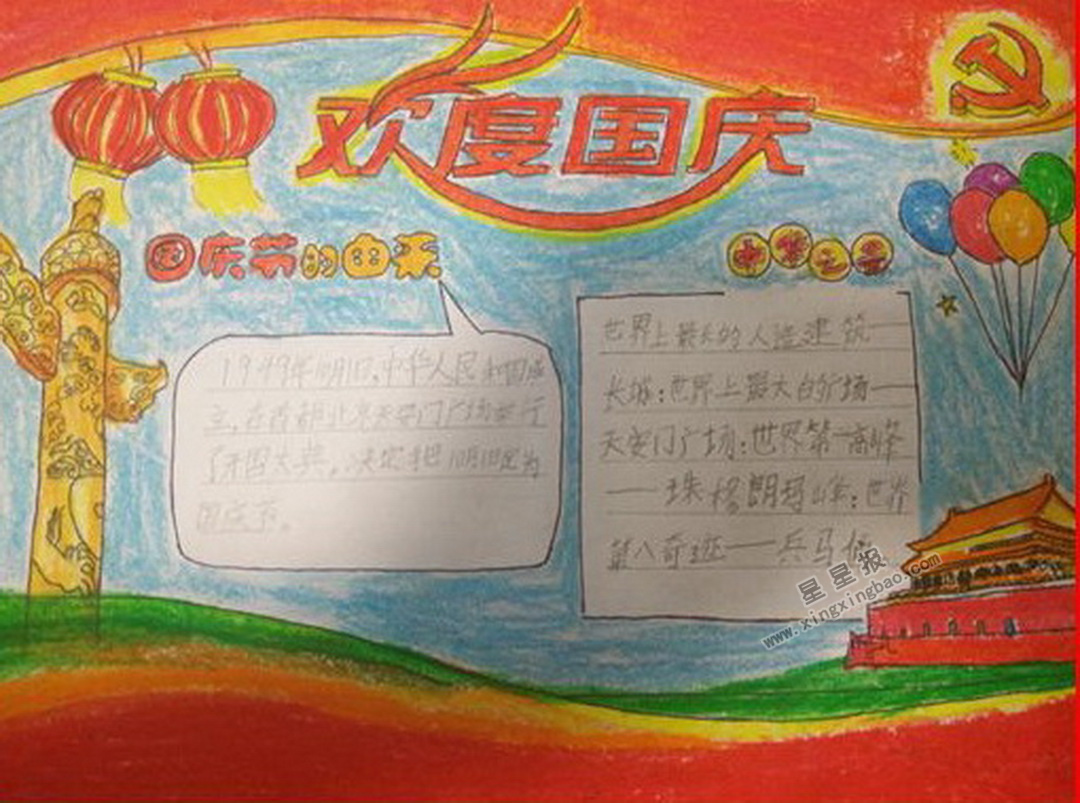 欢度国庆
国庆节的由来
中华之最
1949年10月1日,中华人民共和国成
立,在首都北京天安门广场举行
了开国大典。决定把10月1日定为
国庆节。
世界上最大的人造建筑——
长城:世界上最大的广场——
天安门广场:世界第一高峰
——珠穆朗玛峰:世界
第八奇迹——兵马俑
星星报
www.xingxingbao.com